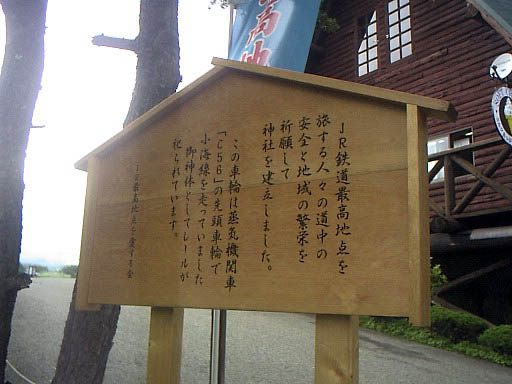 JR鉄道最高地点を
旅する人々の道中の
安全と地域の繁栄を
祈願して
神社を建立しました。
この車輪は蒸気機関車
「C56」の先頭車輪で
小海線を走っていました
御神体としてレールが
祀られています。
JR最高地点を愛する会
高地